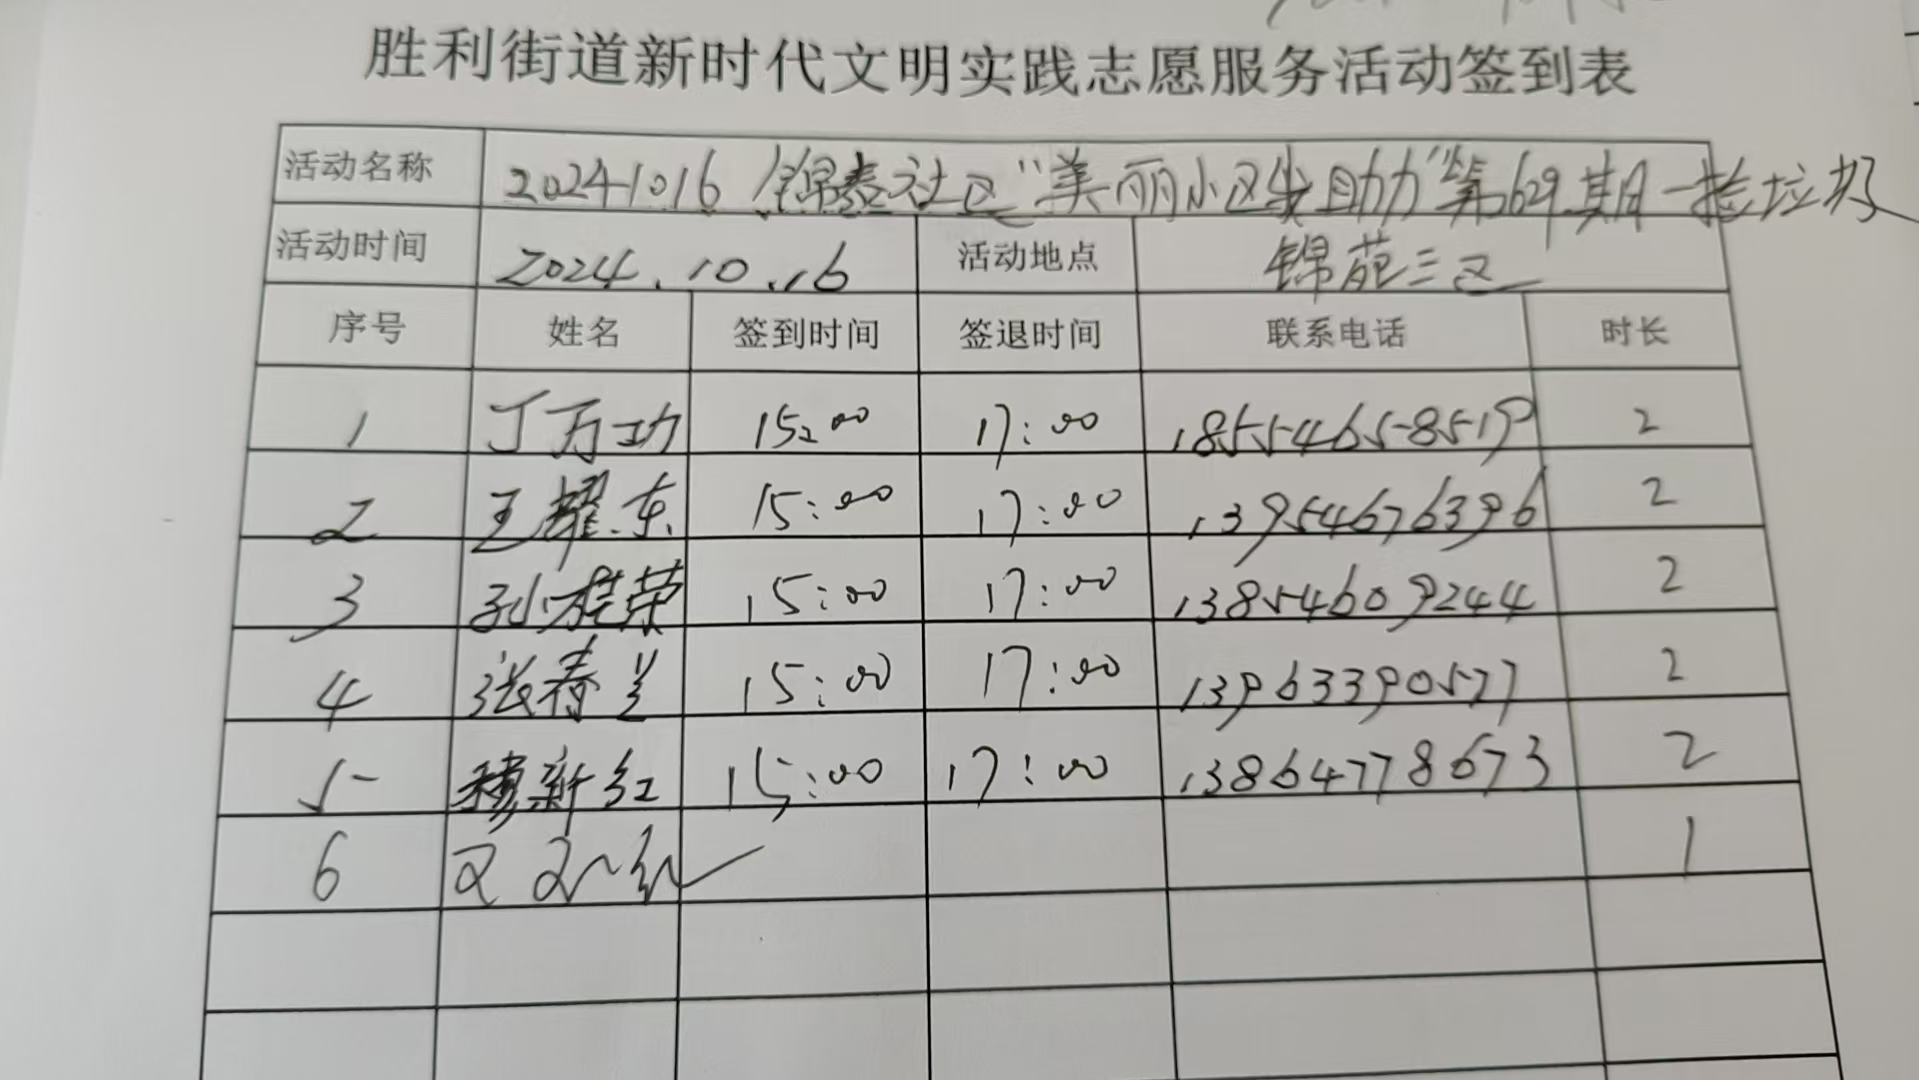 胜利街道新时代文明实践志愿服务活动签到表
活动名称 20241016锦泰社区“美丽小区 助力”第69期-捡垃圾
活动时间 2024.10.16 活动地点 锦苑三区
序号 姓名 签到时间 签退时间 联系电话 时长
1 丁万功 15:00 17:00 18554658519 2
2 王耀东 15:00 17:00 13954676396 2
3 孙桂荣 15:00 17:00 13854609244 2
4 张春兰 15:00 17:00 13963390577 2
5 穆新红 15:00 17:00 13864778673 2
6 1